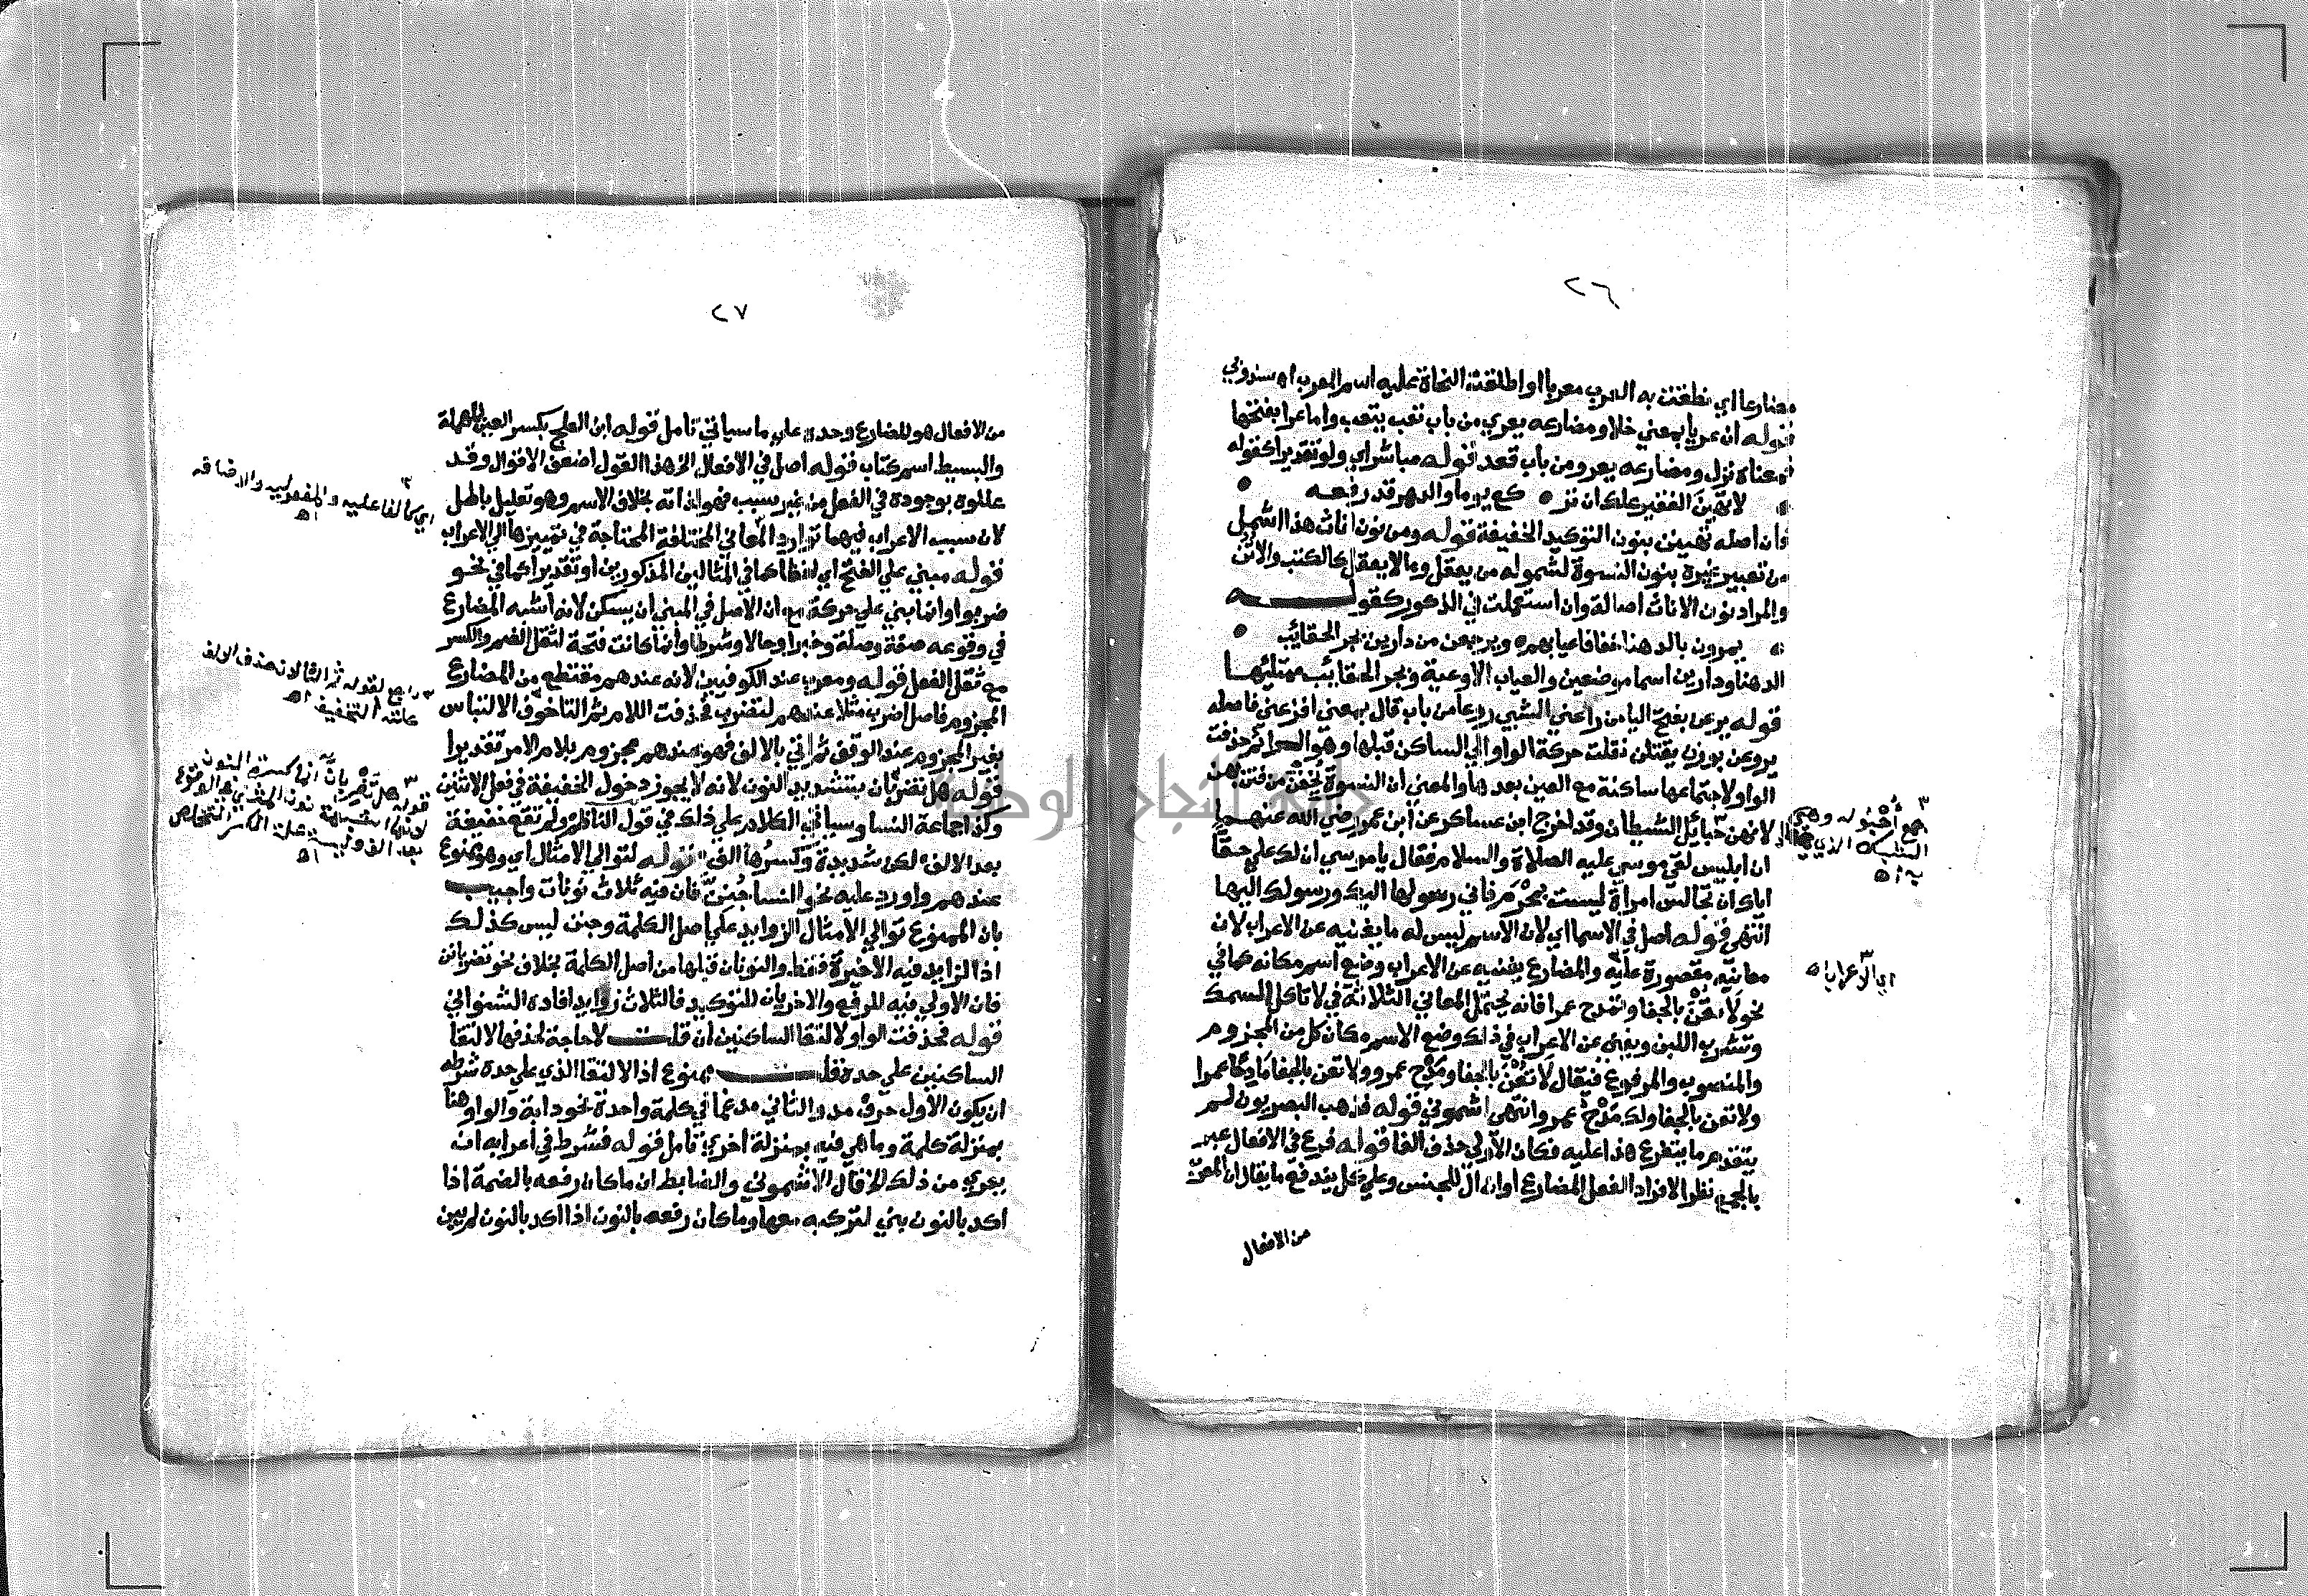 ٢٦
مضارعا اي نطقت به العرب معربا او اطلقت النحاة عليه اسم المعرب اه سندوبي
قوله ان عريا بمعني خلا ومضارعه يعري من باب تعب يتعب واما عرا بفتحها
فمعناه نزل ومضارعه يعرو من باب قعد قوله مباشر اي ولو تقديرا كقوله
لا تهين الفقير علك ان تر كع يوما والدهر قد رفعه
فان اصله تهينن بنون التوكيد الخفيفة قوله ومن نون اناث هذا اشمل
من تعبير غيره بنون النسوة لشموله من يعقل وما لا يعقل كالكتب والاتن
والمراد نون الاناث اصالة وان استعملت في الذكور كقوله
يمرون بالدهنا خفافا عيابهم ويرجعن من دارين بجر الحقائب
الدهنا ودارين اسما موضعين والعياب الاوعية وبجر الحقائب ممتليها
قوله يرعن بفتح اليا من راعني الشيي روعا من باب قال بمعني افزعني فاصله
يروعن بوزن يقتلن نقلت حركة الواو الي الساكن قبلها وهو الرا ثم حذفت
الواو لاجتماعها ساكنة مع العين بعدها والمعني ان النسوة يخفن من فتن بهن
لانهن حبايل الشيطان وقد اخرج ابن عساكر عن ابن عمر رضي الله عنهما
ان ابليس لقي موسي عليه الصلاة والسلام فقال يا موسي ان لك علي حقا
اياك ان تجالس امراة ليست بمحرم فاني رسولها اليك ورسولك اليها
انتهي قوله اصل في الاسما اي لان الاسم ليس له ما يغنيه عن الاعراب لان
معانيه مقصورة عليه والمضارع يغنيه عن الاعراب وضع اسم مكانه كما في
نحو لا تعن بالجفا وتمدح عمرا فانه يحتمل المعاني الثلاثة في لا تاكل السمك
وتشرب اللبن ويغني عن الاعراب في ذلك وضع الاسم مكان كل من المجزوم
والمنصوب والمرفوع فيقال لا تعن بالجفا ومدح عمرو ولا تعن بالجفا مادحا عمرا
ولا تعن بالجفا ولك مدح عمرو انتهي اشموني قوله فذهب البصريون لم
يتقدم ما يتفرع هذا عليه فكان الاولي حذف الفا قوله فرع في الافعال عبر
بالجمع نظرا لافراد الفعل المضارع او ان ال للجنس وعلي كل يندفع ما يقال ان المعرب
من الافعال
جمع احبوله وهي
الشبك الذي
به اه
اي الاعراب اه
٢٧
من الافعال هو المضارع وحده علي ما سياتي تامل قوله ابن العلج بكسر العين المهملة
والبسيط اسم كتاب قوله اصل في الافعال الخ هذا القول اضعف الاقوال وقد
عللوه بوجوده في الفعل من غير سبب فهو لذاته بخلاف الاسم وهو تعليل باطل
لان سبب الاعراب فيهما توارد المعاني المختلفة المحتاجة في تمييزها الي الاعراب
قوله مبني علي الفتح اي لفظا كما في المثالين المذكورين او تقديرا كما في نحو
ضربوا وانما بني علي حركة مع ان الاصل في المبني ان يسكن لانه اشبه المضارع
في وقوعه صفة وصلة وخبرا وحالا وشرطا وانما كانت فتحة لثقل الضم والكسر
مع ثقل الفعل قوله ومعرب عند الكوفيين لانه عندهم مقتطع من المضارع
المجزوم فاصل اضرب مثلا عندهم لتضرب فحذفت اللام ثم التا خوف الالتباس
بغير المجزوم عند الوقف ثم اتي بالالف فهو عندهم مجزوم بلام الامر تقديرا
قوله هل تضربان بتشديد النون لانه لا يجوز دخول الخفيفة في فعل الاثنين
وكذا جماعة النسا وسياتي الكلام علي ذلك في قول الناظم ولم تقع خفيفة
بعد الالف لكن شديدة وكسرها الف قوله لتوالي الامثال اي وهو ممنوع
عندهم واورد عليه نحو النسا جنن فان فيه ثلاث نونات واجيب
بان الممنوع توالي الامثال الزوايد علي اصل الكلمة وجنن ليس كذلك
اذ الزايد فيه الاخيرة فقط والنونان قبلها من اصل الكلمة بخلاف نحو تضربانن
فان الاولي فيه للرفع والاخريان للتوكيد فالثلاث زوايد افاده الشنواني
قوله فحذفت الواو لالتقا الساكنين ان قلت لا حاجة لحذفها لالتقا
الساكنين علي حده قلت ممنوع اذ الالتقا الذي علي حده شرطه
ان يكون الاول حرف مد والثاني مدغما في كلمة واحدة نحو دابة والواو هنا
بمنزلة كلمة وما هي فيه بمنزلة اخري تامل قوله فشرط في اعرابه ان
يعري من ذلك الخ قال الاشموني والضابط ان ما كان رفعه بالضمة اذا
اكد بالنون بني لتركبه معها وما كان رفعه بالنون اذا اكد بالنون لم يبن
اي كالفاعليه والمفعوليه والاضافه
اه
راجع لقوله ثم التا لان حذف الالف
علته التخفيف اه
قوله هل تضربان انما كسرت النون
لانها اشبهت نون المثني في الوقوع
بعد الف
اه